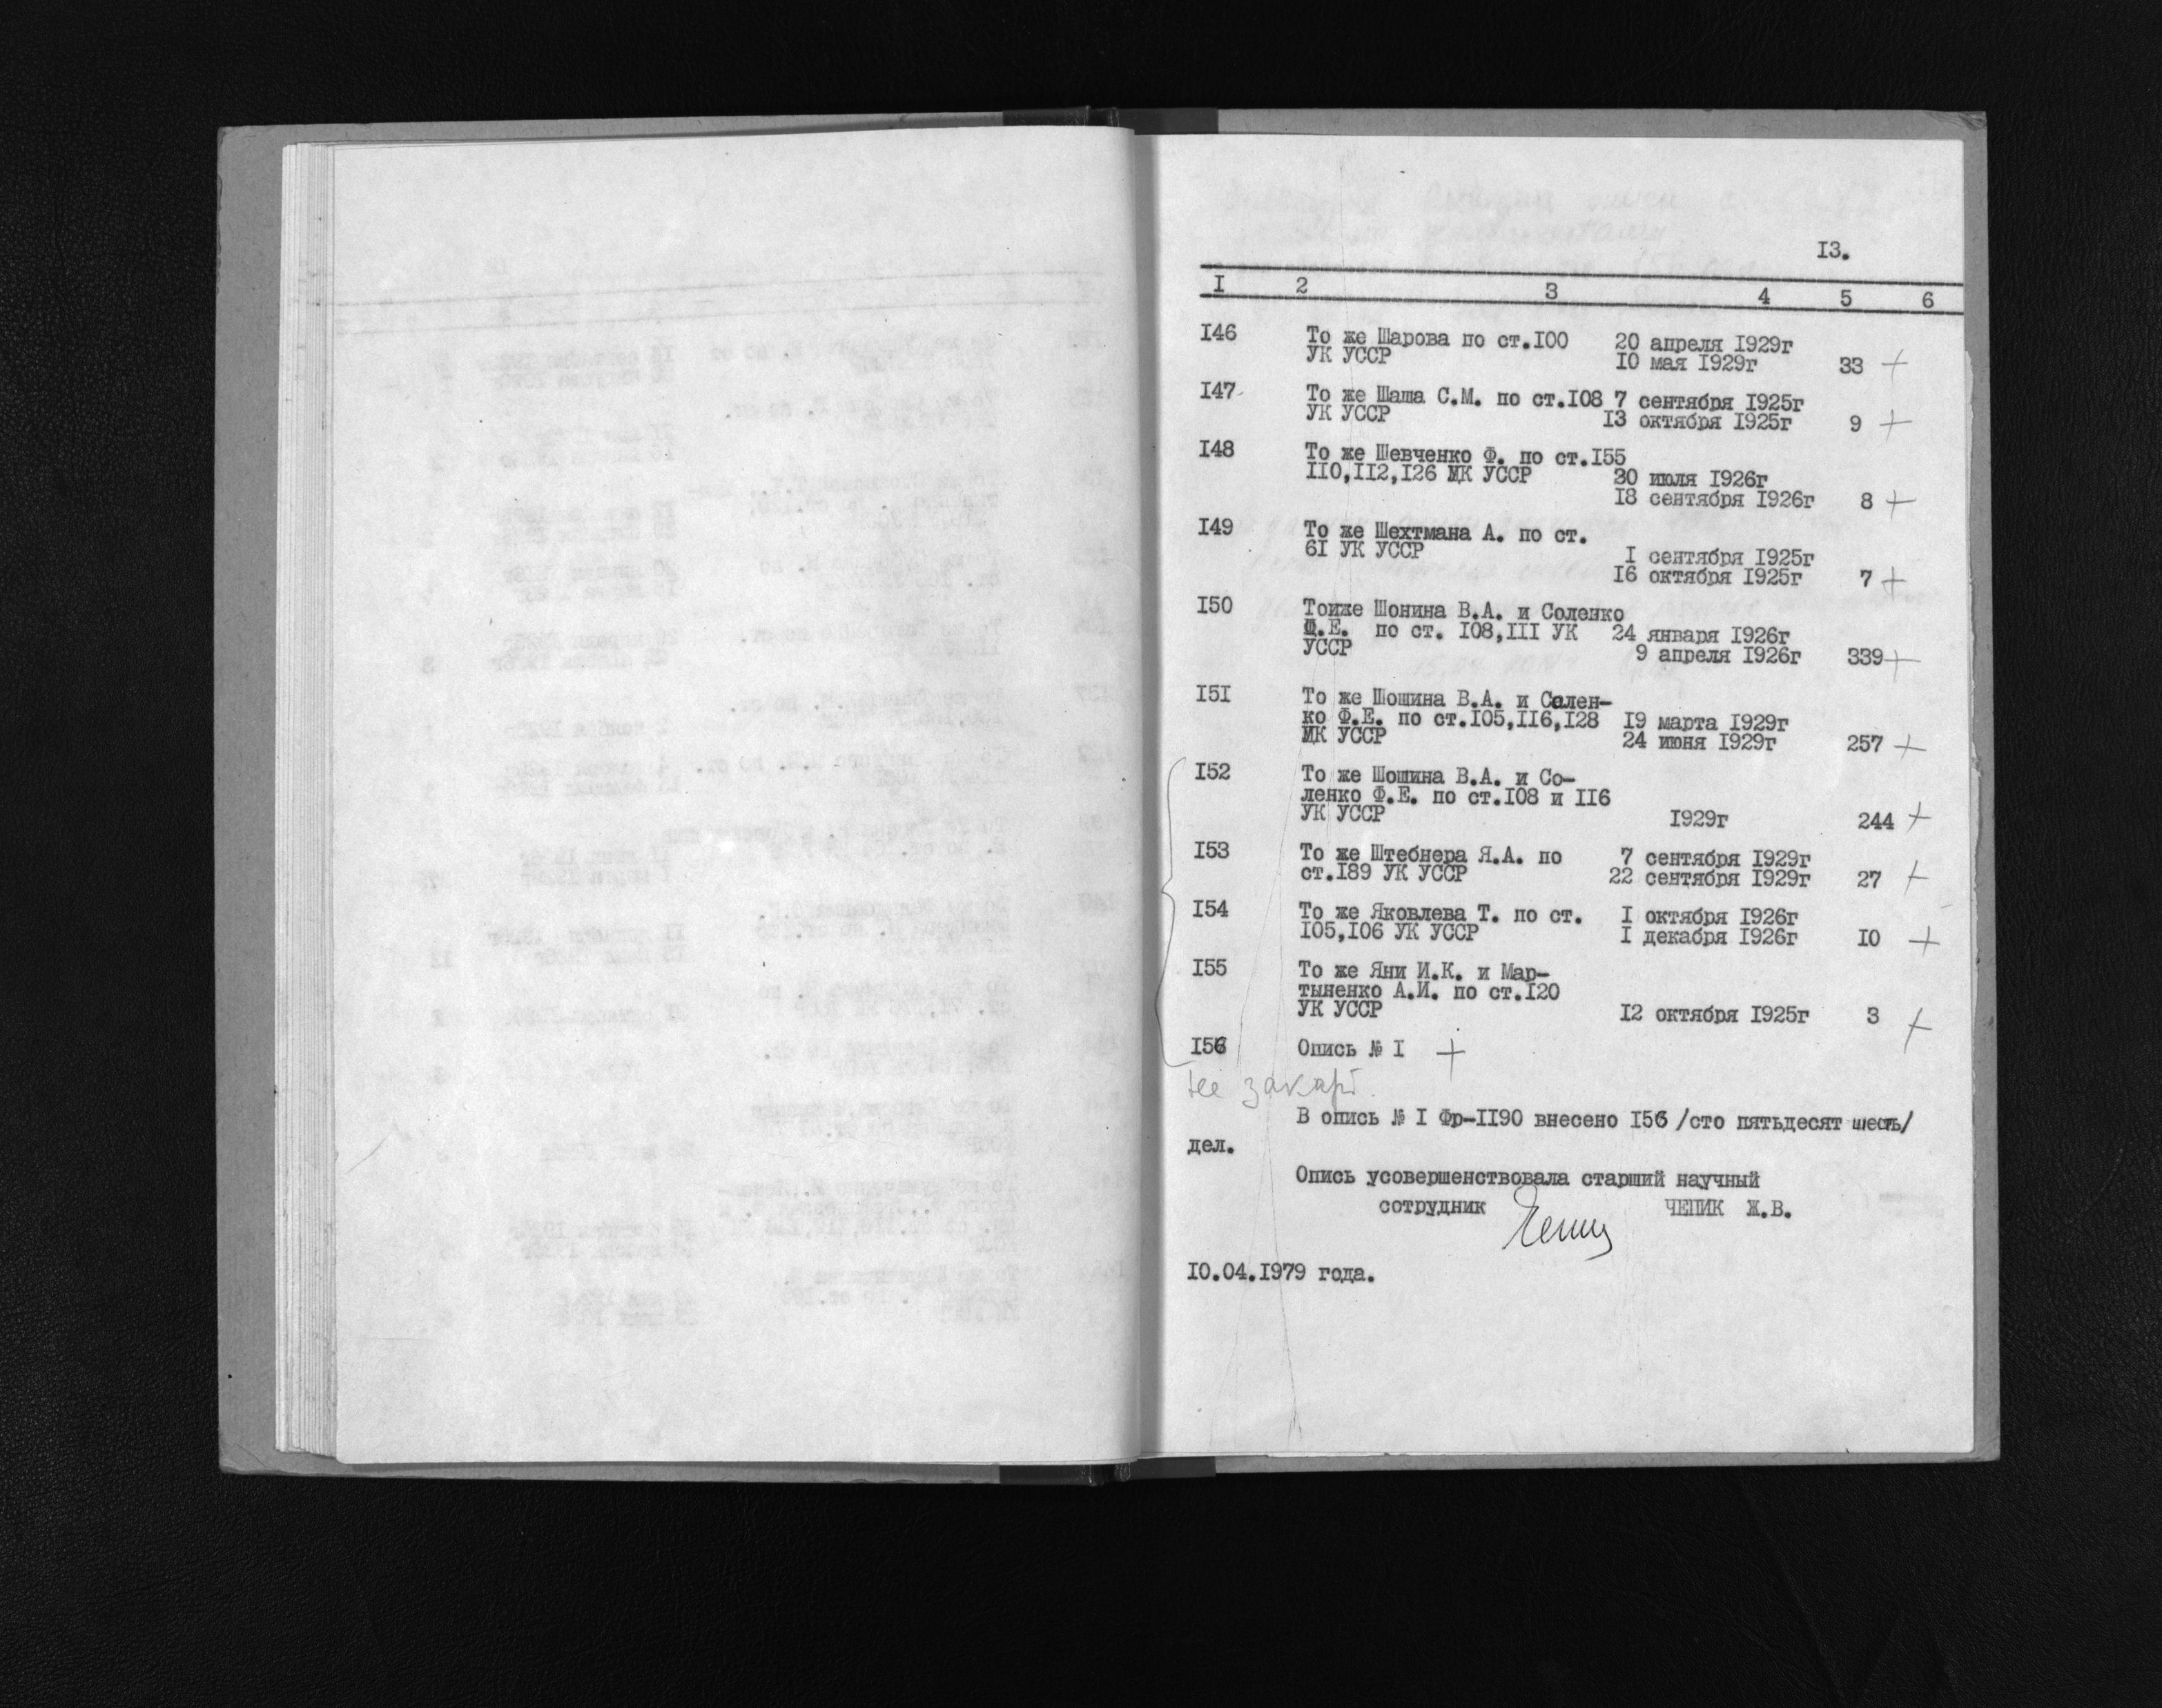 I3.
I 2 3 4 5 6
I46 То же Шарова по ст.I00 20 апреля I929г
УК УССР I0 мая I929г 33 +
I47 То же Шаша С.М. по ст.I08 7 сентября I925г
УК УССР I3 октября I925г 9 +
I48 То же Шевченко Ф. по ст.I55
II0,II2,I26 УК УССР 30 июля I926г
I8 сентября I926г 8 +
I49 То же Шехтмана А. по ст.
6I УК УССР I сентября I925г
I6 октября I925г 7 +
I50 Тоиже Шонина В.А. и Соленко
Ф.Е. по ст. I08,III УК 24 января I926г
УССР 9 апреля I926г 339 +
I5I То же Шошина В.А. и Сален-
ко Ф.Е. по ст.I05,II6,I28 I9 марта I929г
УК УССР 24 июня I929г 257 +
I52 То же Шошина В.А. и Со-
ленко Ф.Е. по ст.I08 и II6
УК УССР I929г 244 +
I53 То же Штебнера Я.А. по 7 сентября I929г
ст.I89 УК УССР 22 сентября I929г 27 +
I54 То же Яковлева Т. по ст. I октября I926г
I05,I06 УК УССР I декабря I926г I0 +
I55 То же Яни И.К. и Мар-
тыненко А.И. по ст.I20
УК УССР I2 октября I925г 3 +
I56 Опись № I +
не закарт.
В опись № I Фр-II90 внесено I56 /сто пятьдесят шесть/
дел.
Опись усовершенствовала старший научный
сотрудник ЧЕПИК Ж.В.
I0.04.I979 года.